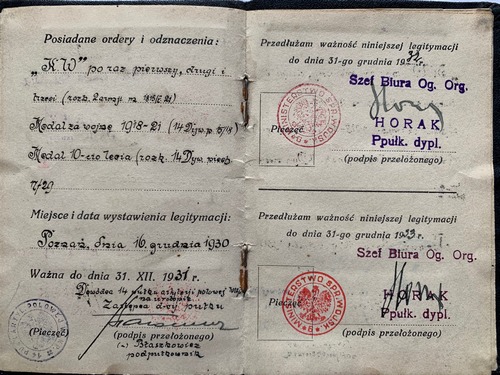 Posiadane ordery i odznaczenia:
„K.W" po raz pierwszy, drugi i
trzeci (rozk. 2 armji nr.
Medal za wojnę 1918-21 (14 Dyw. p.
Medal 10-cio lecia (rozk. 14 Dyw. piech.
7/29
Miejsce i data wystawienia legitymacji:
Poznań, dnia 16. grudnia 1930
Ważna do dnia 31. XII. 1931 r.
Dowódca 14 pułku artylerji polowej
na urlopie
Zastępca d-cy pułku
(Pieczęć)
(podpis przełożonego)
(-) Błaszkowicz
podpułkownik
Przedłużam ważność niniejszej legitymacji
do dnia 31-go grudnia 1932 r.
Szef Biura Og. Org.
MINISTERSTWO SPRAW WOJSK
Pieczęć
HORAK
Ppułk. dypl.
(podpis przełożonego)
Przedłużam ważność niniejszej legitymacji
do dnia 31-go grudnia 1933 r.
Szef Biura Og. Org.
MINISTERSTWO SPRAW WOJSK
HORAK
Ppułk. dypl.
(podpis przełożonego)